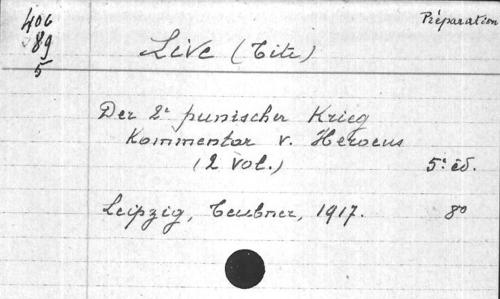 406
89
5
Préparation
Live (Tite)
Der 2e punischer Krieg
Kommentar v. Heraeus
(2 vol.) 5e éd.
Leipzig, Teubner, 1917. 8o